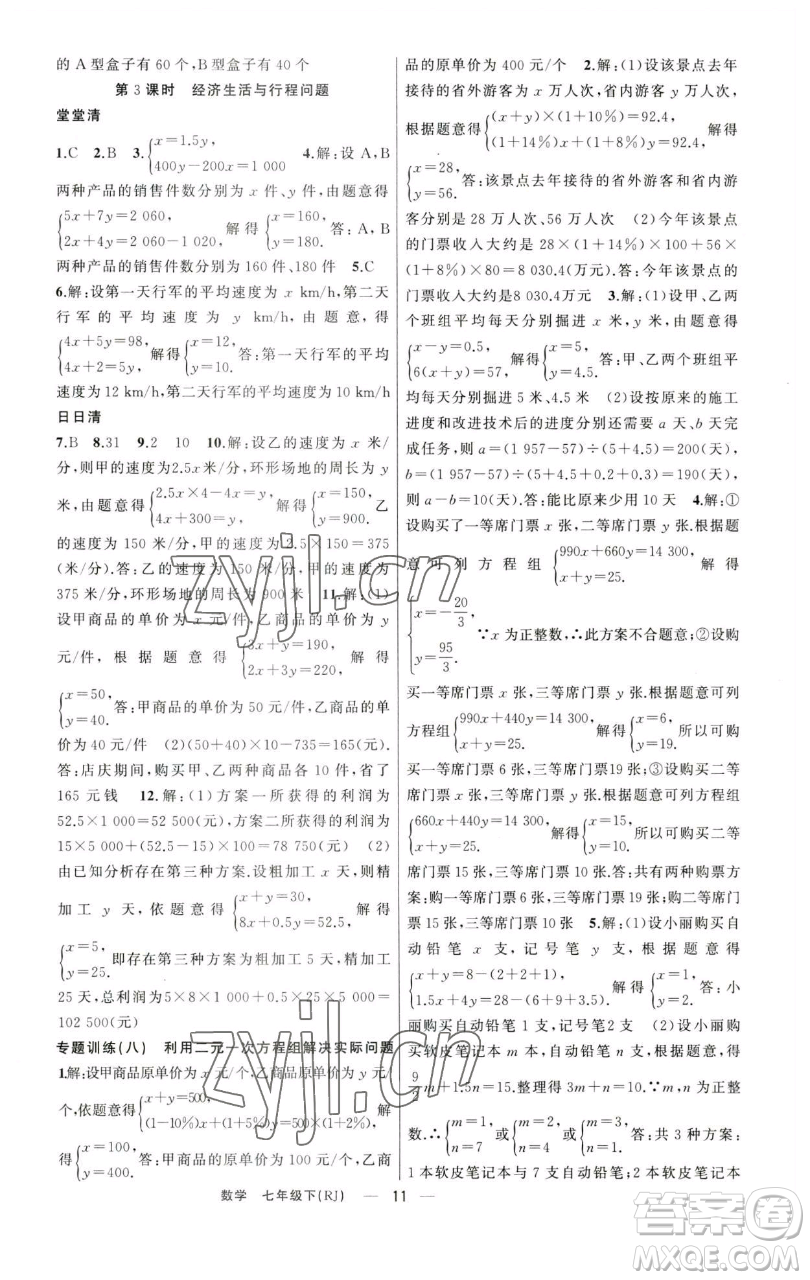 的 A 型盒子有 60 个,B 型盒子有 40 个
第 3 课时 经济生活与行程问题
堂堂清
1.C 2.B 3.{x=1.5y, 400y-200x=1 000 4.解:设 A,B
两种产品的销售件数分别为 x 件、y 件,由题意得
{5x+7y=2 060, 2x+4y=2 060-1 020, 解得{x=160, y=180. 答:A,B
两种产品的销售件数分别为 160 件、180 件 5.C
6.解:设第一天行军的平均速度为 x km/h,第二天
行军的平均速度为 y km/h,由题意,得
{4x+5y=98, 4x+2=5y, 解得{x=12, y=10. 答:第一天行军的平均
速度为 12 km/h,第二天行军的平均速度为 10 km/h
日日清
7.B 8.31 9.2 10 10.解:设乙的速度为 x 米/
分,则甲的速度为2.5x 米/分,环形场地的周长为 y
米,由题意得{2.5x×4-4x=y, 4x+300=y. 解得{x=150, y=900. 乙
的速度为 150 米/分,甲的速度为 2.5×150=375
(米/分).答:乙的速度为 150 米/分,甲的速度为
375 米/分,环形场地的周长为 900 米 11.解:(1)
设甲商品的单价为 x 元/件,乙商品的单价为 y
元/件,根据题意得{x+3y=190, 2x+3y=220, 解得
{x=50, y=40. 答:甲商品的单价为 50 元/件,乙商品的单
价为 40 元/件 (2)(50+40)×10-735=165(元).
答:店庆期间,购买甲、乙两种商品各 10 件,节省了
165 元钱 12.解:(1)方案一所获得的利润为
52.5×1 000=52500(元),方案二所获得的利润为
15×5 000+52.5×1 000=78 750(元) (2)
由已知分析存在第三种方案.设粗加工 x 天,精
加工 y 天,依题意得{x+y=30, 8x+0.5y=52.5, 解得
{x=5, y=25. 即存在第三种方案为粗加工 5 天,精加工
25 天,总利润为5×8×1 000+25×0.5×5 000=
102 500(元)
专题训练(八) 利用二元一次方程组解决实际问题
1.解:设甲商品原单价为 x 元/个,乙商品原单价为 y 元/
个,依题意得{x+y=500, (1-10%)x+(1+5%)y=500×(1+2%), 解
得{x=100, y=400. 答:甲商品的原单价为 100 元/个,乙商
品的原单价为 400 元/个 2.解:(1)设该景点去年
接待的省外游客为 x 万人次,省内游客 y 万人次,
根据题意得{(x+y)×(1+10%)=92.4, (1+14%)x+(1+8%)y=92.4, 解得
{x=28, y=56. 答:该景点去年接待的省外游客和省内游
客分别是 28 万人次、56 万人次 (2)今年该景点
的门票收入大约是 28×(1+14%)×100+56×
(1+8%)×80=8 030.4(万元).答:今年该景点的
门票收入大约是 8 030.4 万元 3.解:(1)设甲、乙两
个班组平均每天分别掘进 x 米,y 米,根据题意得
{x-y=0.5, 6(x+y)=57. 解得{x=5, y=4.5. 答:甲、乙两个班组平
均每天分别掘进 5 米、4.5 米 (2)设按原来的施工
进度和改进技术后的进度分别还需要 a 天、b 天完
成任务,则 a=(1 957-57)÷(5+4.5)=200(天),
b=(1 957-57)÷(5+4.5+0.2+0.3)=190(天),
则 a-b=10(天).答:能比原来少用 10 天 4.解:①
设购买了一等席门票 x 张,二等席门票 y 张,根据题
意可列方程组{990x+660y=14 300, x+y=25. 解得
{x=-20/3, y=95/3. ∵x 为正整数,∴此方案不合题意;②设购
买一等席门票 x 张,三等席门票 y 张.根据题意可列
方程组{990x+440y=14 300, x+y=25. 解得{x=6, y=19. 所以可购
买一等席门票 6 张,三等席门票19 张;③设购买二等
席门票 x 张,三等席门票 y 张.根据题意可列方程组
{660x+440y=14 300, x+y=25. 解得{x=15, y=10. 所以可购买二等
席门票 15 张,三等席门票 10 张.答:共有两种购票方
案:购一等席门票 6 张,三等席门票 19 张或购二等席
门票 15 张,三等席门票 10 张 5.解:(1)设小丽购买自
动铅笔 x 支,记号笔 y 支,根据题意得
{x+y=8-(2+2+1), 1.5x+4y=28-(6+9+3.5), 解得{x=1, y=2. 答:小
丽购买自动铅笔 1 支,记号笔 2 支 (2)设小丽购
买软皮笔记本 m 本,自动铅笔 n 支,根据题意得
9/2 m+1.5n=15.整理得 3m+n=10,∵m,n 为正整
数.∴{m=1, n=7 或{m=2, n=4 或{m=3, n=1. 答:共 3 种方案:
1 本软皮笔记本与 7 支自动铅笔;2 本软皮笔记本
数学 七年级下(RJ) — 11 —
zyjl.cn
答案圈
MXQE.COM